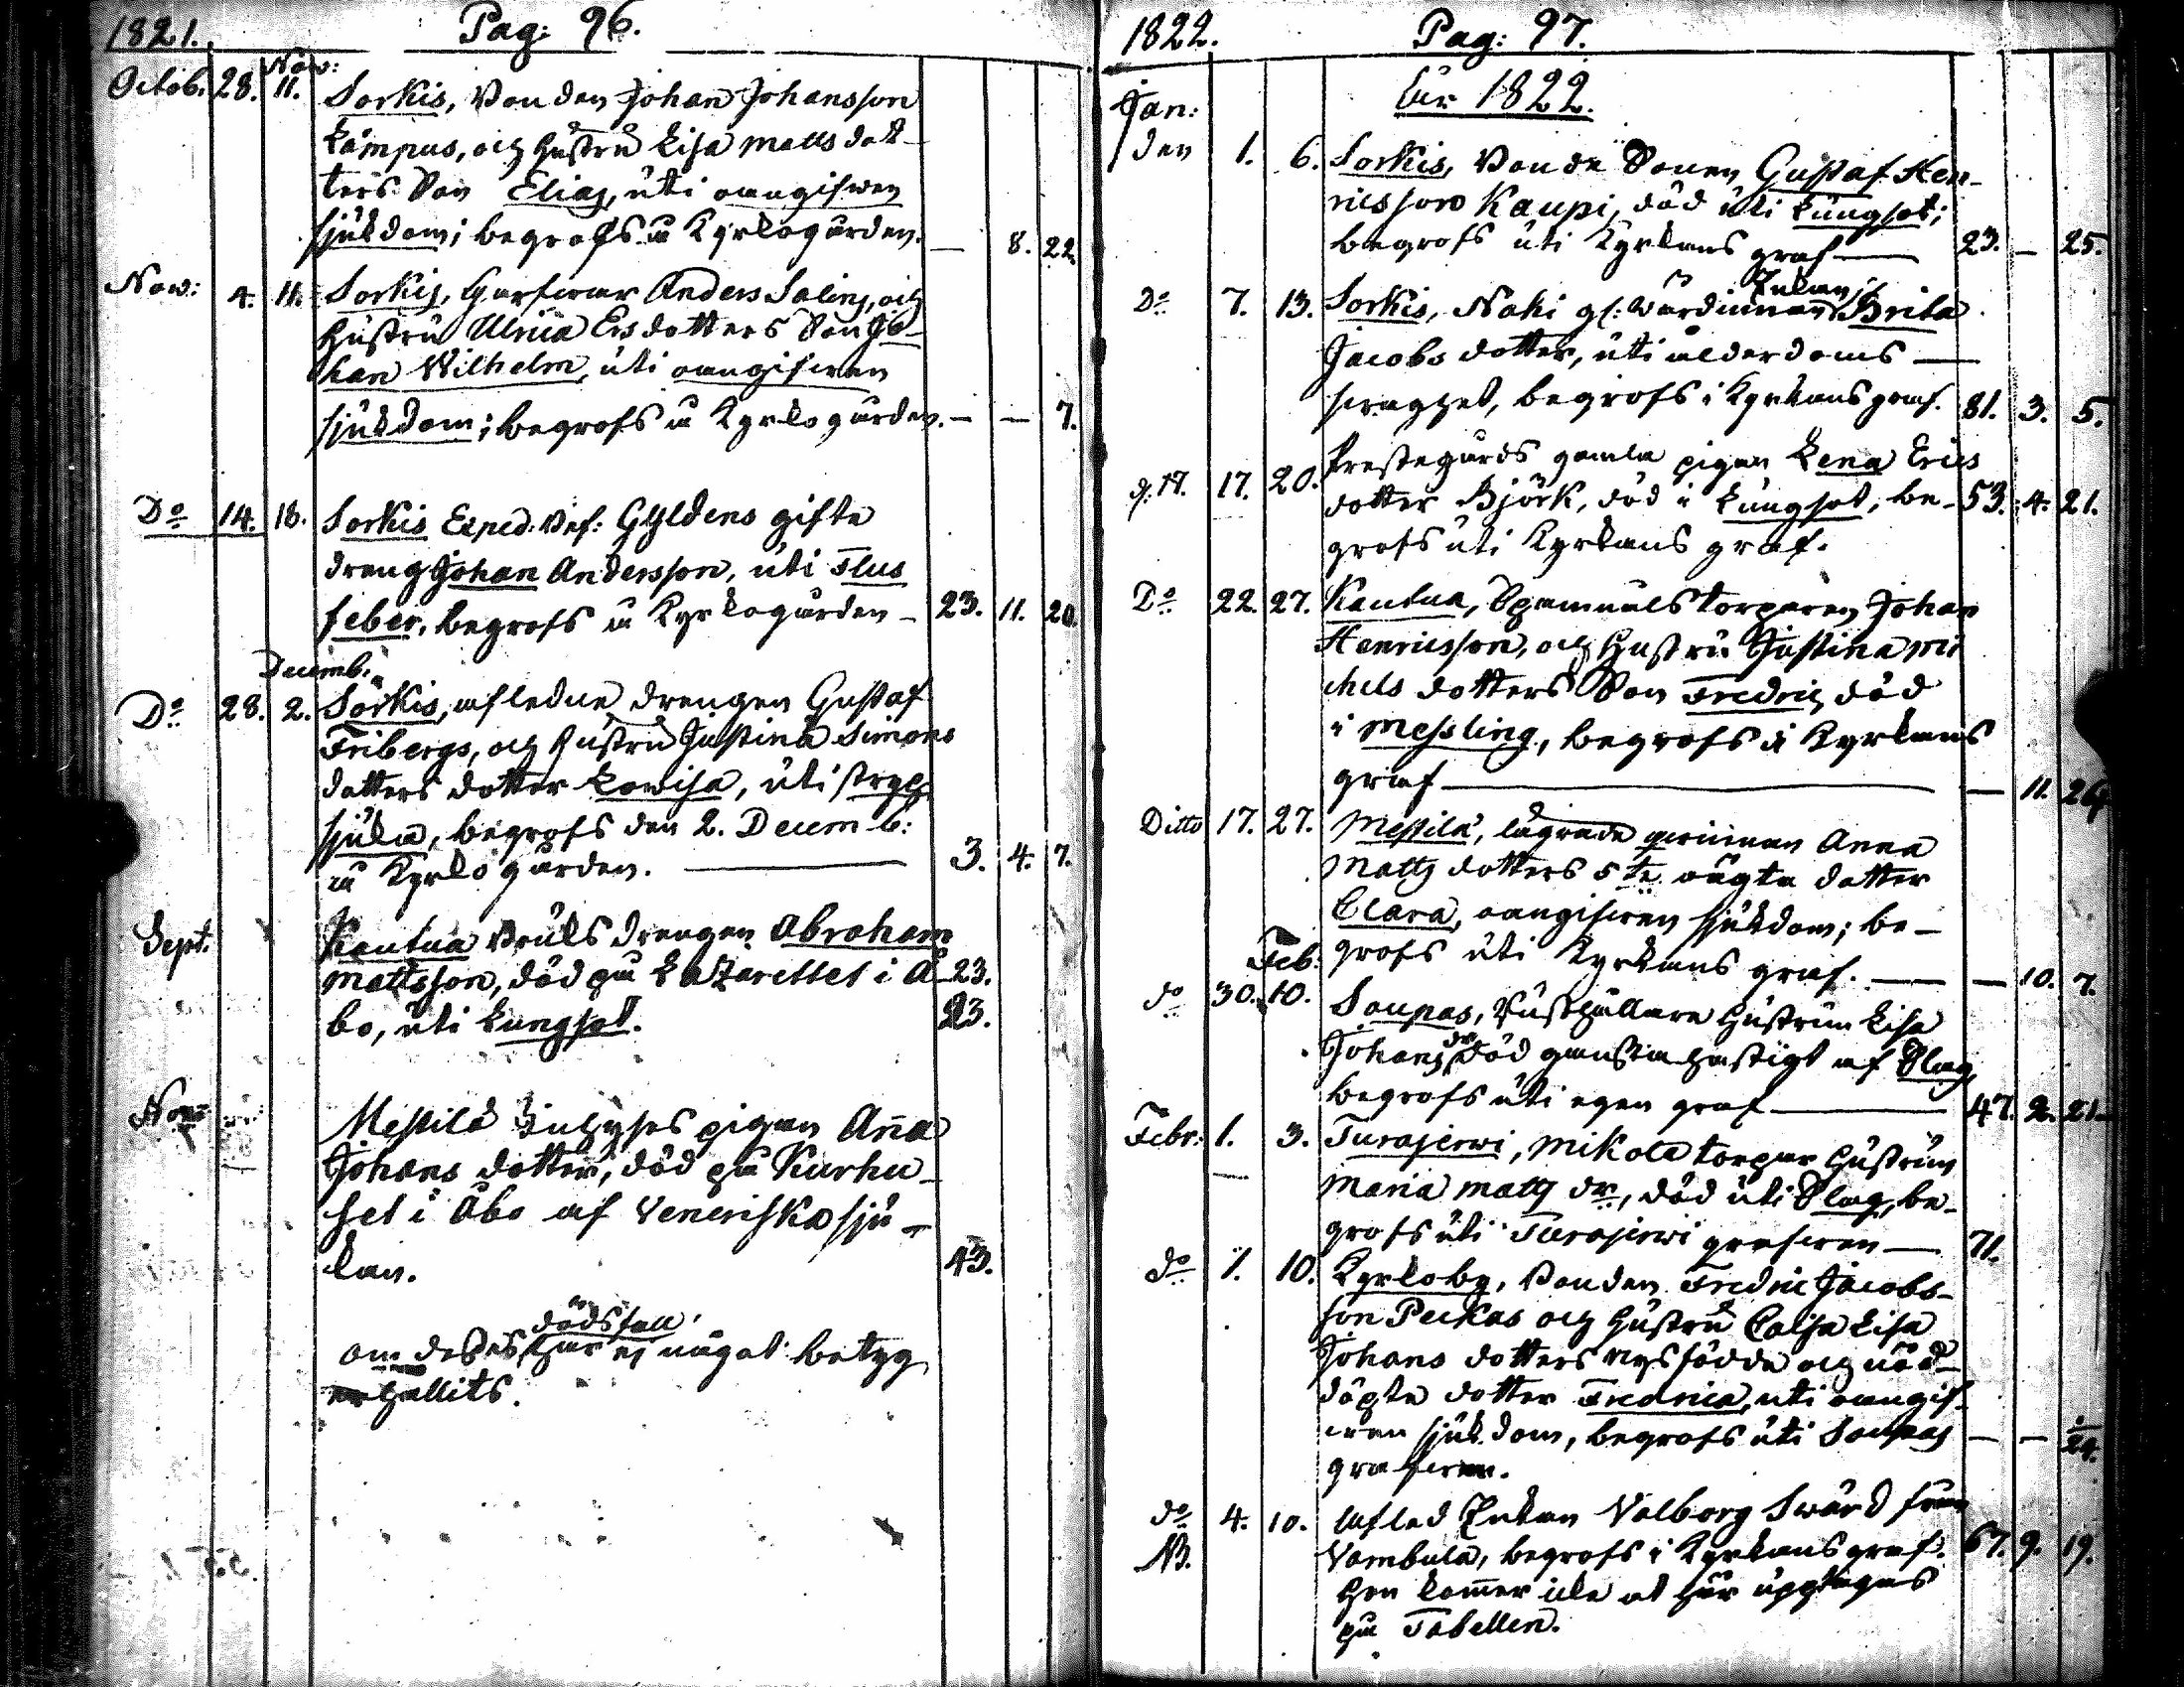 1821. Pag: 96.
Now:
Octob. 28. 11. Sorkis, Bonden Johan Johansson
Kämpus, och hustru Lisa Matts dot-
ters Son Elias, uti oangifwen
sjukdom; begrofs å Kyrkogården. — 8. 22.
Now: 4. 11. Sorkis, Garfware Anders Salins, och
hustru Ulrica Ersdotters Son Jo-
han Wilhelm, uti oangifwen
sjukdom; begrofs å Kyrkogården. — — 7.
Do 14. 18. Sorkis Exped: Bef: Gyldens gifte
dreng Johan Andersson, uti Flus
feber, begrofs å Kyrkogården — 23. 11. 20.
Decemb.
Do 28. 2. Sorkis, afledne drengen Gustaf
Fribergs, och hustru Justina Simons
dotters dotter Lowisa, uti
sjuka, begrofs den 2. Decemb:
å Kyrkogården. — 3. 4. 7.
Sept. Kautua Bruks drengen Abraham
Mattsson, död på Lazarettet i Å- 23.
bo, uti Lungsot. 23.
Now: Messilä Inhyses pigan Aña
Johans dotter, död på Kurhu-
set i Åbo af Veneriska sju-
kan. 43.
dödsfall
om dessas har ej något betyg
erhållits.
1822. Pag: 97.
År 1822.
Jan:
den 1. 6. Sorkis, Bonde Sonen Gustaf Hen-
ricsson Kaupi, död uti Lungsot;
begrofs uti Kyrkans graf — 23. — 25.
Enkan
Do 7. 13. Sorkis, Naki gl: Wärdinnan Brita
Jacobs dotter, uti ålderdoms —
swaghet, begrofs i Kyrkans graf. 81. 3. 5.
Prestegårds gamla pigan Lena Erics
d. 17. 17. 20. dotter Björk, död i Lungsot, be- 53. 4. 21.
grofs uti Kyrkans graf.
Do 22. 27. Kautua, Spammäls torparen Johan
Henricsson, och Hustru Justina Mi
chels dotters Son Fredric, död
i Messling, begrofs i Kyrkans
graf — — 11. 24
Ditto 17. 27. Messilä, lägrade qwinnan Anna
Matts dotters 5te oägta dotter
Clara, oangifwen sjukdom; be-
Feb: grofs uti Kyrkans graf. — — 10. 7.
do 30. 10. Soupas, Rusthållare Hustrun Lisa
Johans dr, död ganska hastigt af Slag,
begrofs uti egen graf — 47. 2. 21.
Febr: 1. 3. Turajerwi, Mikola torpar hustrun
Maria Matts dr, död uti Slag, be-
grofs uti Turajerwi grafwen — 71.
do 1. 10. Kyrkoby, Bonden Fredric Jacobs-
son Peckas och hustru Caisa Lisa
Johans dotters nysfödda och nöd-
döpta dotter Fredrica, uti oangif-
wen sjukdom, begrofs uti Soupas — — 1/24.
grafwen.
do 4. 10. Afled Enkan Valborg Swärd från
NB. Vambula, begrofs i Kyrkans graf. 67. 9. 19.
hon kom̄er icke at här upptagas
på Tabellen.